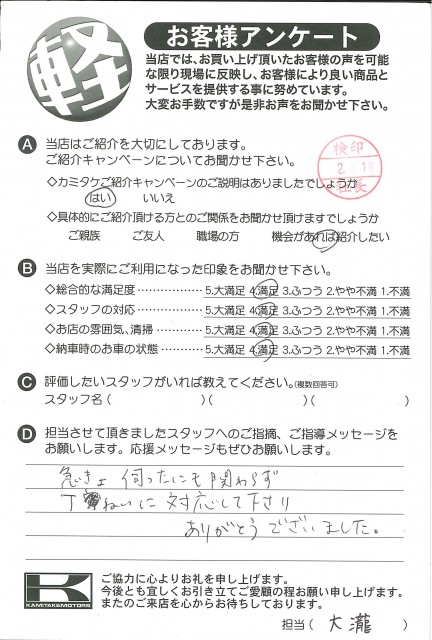 軽
お客様アンケート
当店では、お買い上げ頂いたお客様の声を可能
な限り現場に反映し、お客様により良い商品と
サービスを提供する事に努めています。
大変お手数ですが是非お声をお聞かせ下さい。
A 当店はご紹介を大切にしております。
ご紹介キャンペーンについてお聞かせ下さい。
検印
社長
◇カミタケご紹介キャンペーンのご説明はありましたでしょうか
はい いいえ
◇具体的にご紹介頂ける方とのご関係をお聞かせ頂けますでしょうか
ご親族 ご友人 職場の方 機会があれば紹介したい
B 当店を実際にご利用になった印象をお聞かせ下さい。
◇総合的な満足度 5.大満足 4.満足 3.ふつう 2.やや不満 1.不満
◇スタッフの対応 5.大満足 4.満足 3.ふつう 2.やや不満 1.不満
◇お店の雰囲気、清掃 5.大満足 4.満足 3.ふつう 2.やや不満 1.不満
◇納車時のお車の状態 5.大満足 4.満足 3.ふつう 2.やや不満 1.不満
C 評価したいスタッフがいれば教えてください。(複数回答可)
スタッフ名 ( )( )( )
D 担当させて頂きましたスタッフへのご指摘、ご指導メッセージを
お願いします。応援メッセージもぜひお願いします。
急きょ 伺ったにも関わらず
丁ねいに対応して下さり
ありがとうございました。
K
KAMITAKEMOTORS
ご協力に心よりお礼を申し上げます。
今後とも宜しくお引き立てご愛顧の程お願い申し上げます。
またのご来店を心からお待ちしております。
担当 ( 大瀧 )